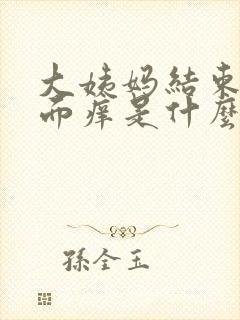 大姨妈結束
而痒是什麼
孫全玉